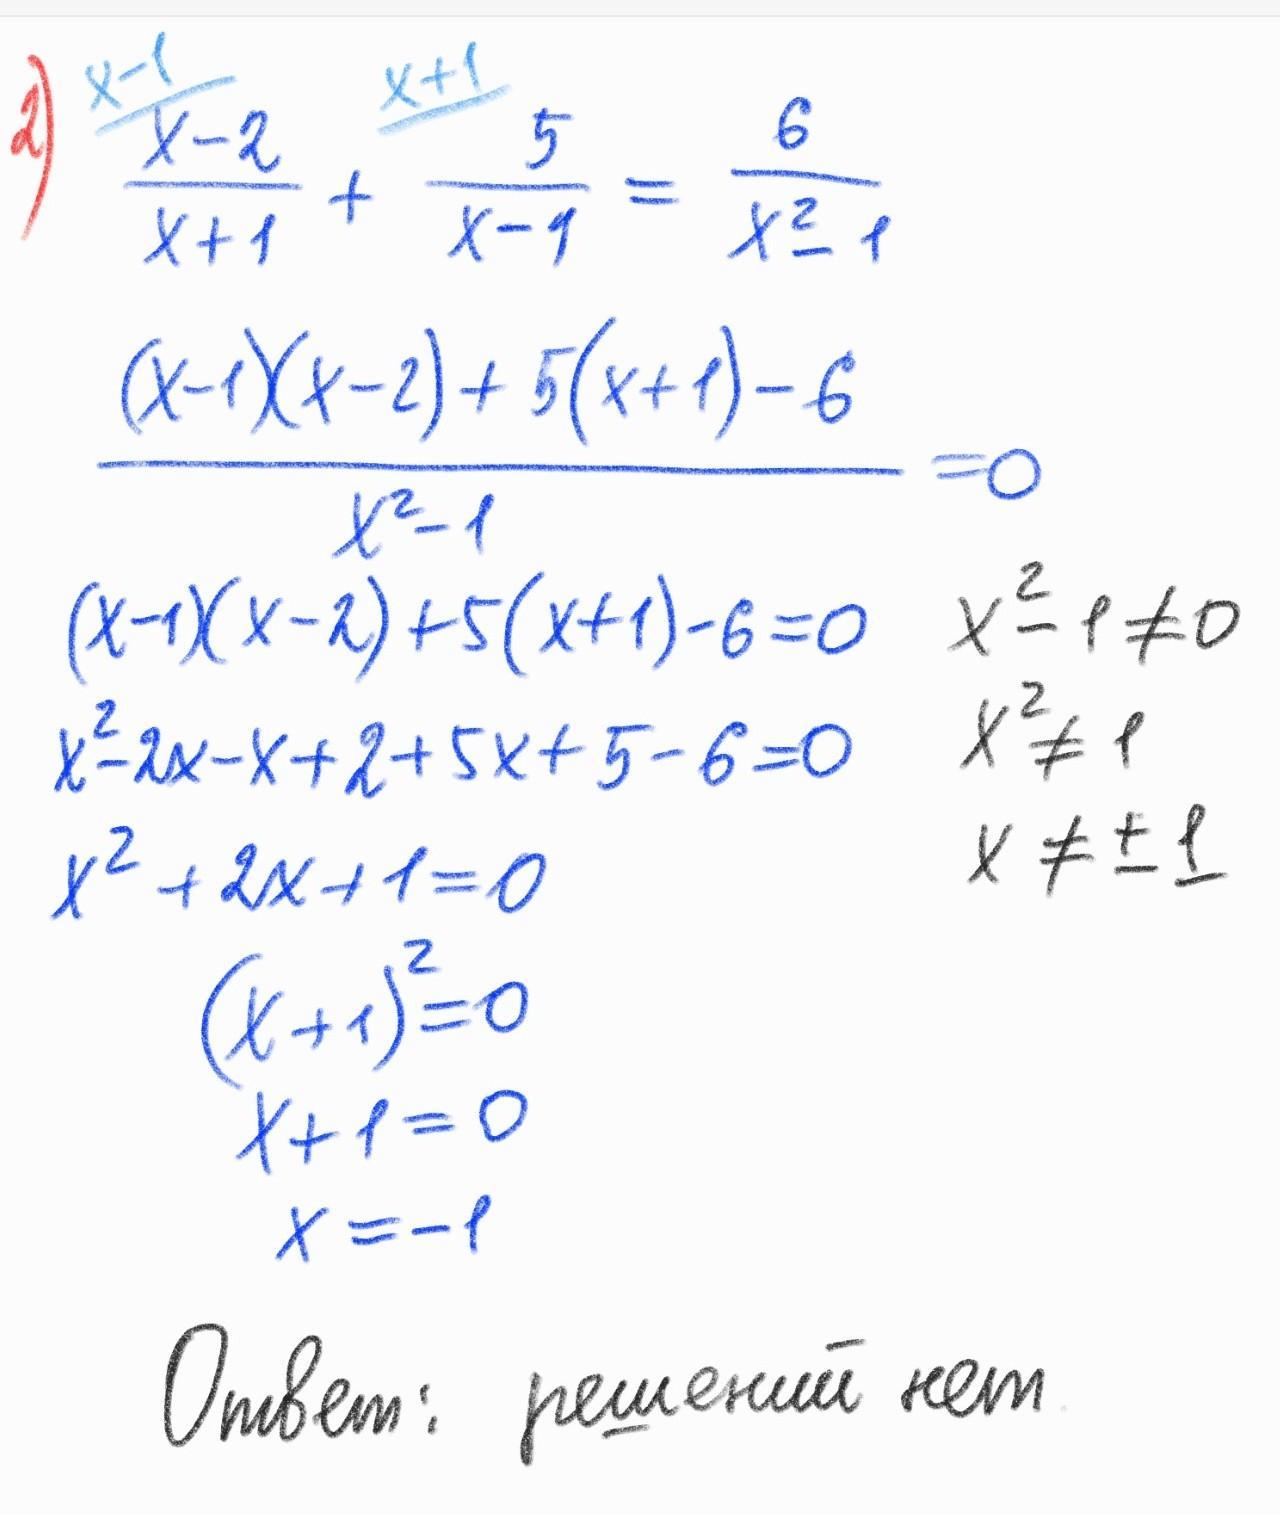 2) x-1 x+1
(x-2)/(x+1) + 5/(x-1) = 6/(x²-1)
((x-1)(x-2)+5(x+1)-6)/(x²-1) =0
(x-1)(x-2)+5(x+1)-6=0 x²-1≠0
x²-2x-x+2+5x+5-6=0 x²≠1
x²+2x+1=0 x≠±1
(x+1)²=0
x+1=0
x=-1
Ответ: решений нет